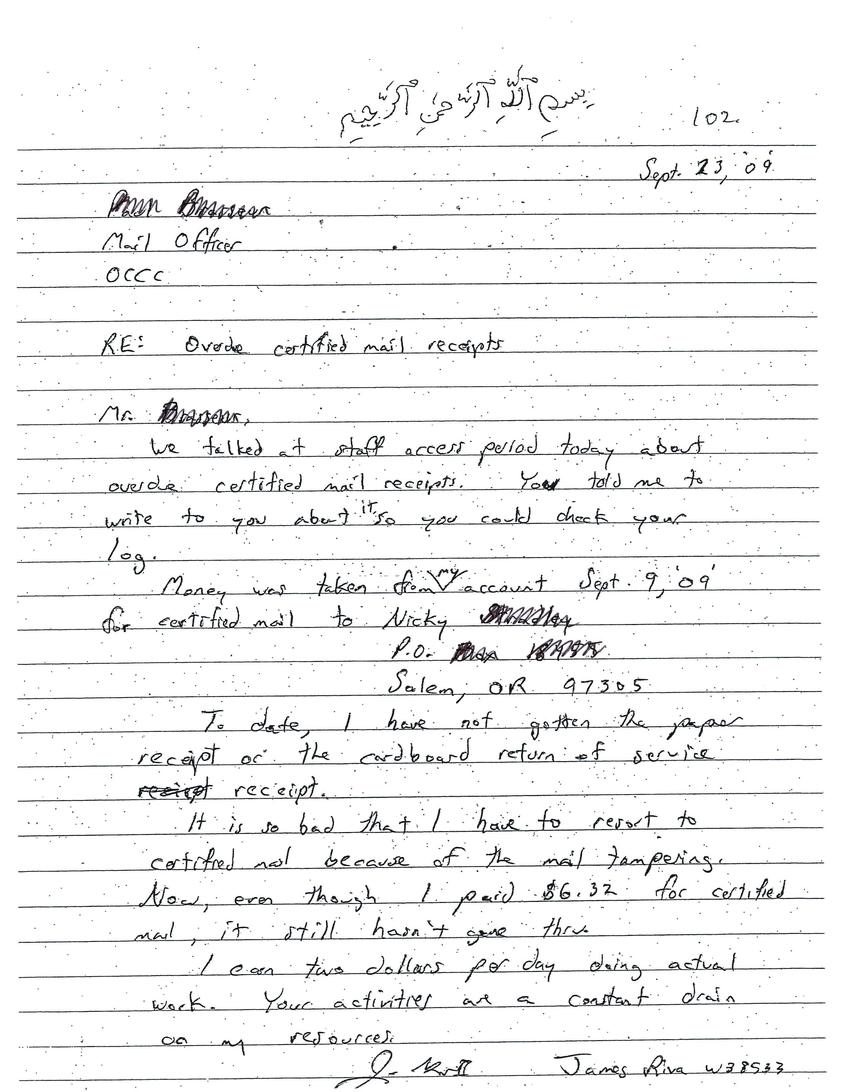 بِسْمِ اللهِ الرَّحْمٰنِ الرَّحِيْمِ
102.
Sept. 23, '09
Mail Officer
OCCC
RE: Overde certified mail receipts
Mr.
We talked at staff access period today about
overde certified mail receipts. You told me to
write to you about it so you could check your
log.
Money was taken from my account Sept. 9, '09
for certified mail to Nicky
P.O.
Salem, OR 97305
To date, I have not gotten the paper
receipt or the cardboard return of service
receipt.
It is so bad that I have to resort to
certified mail because of the mail tampering.
Now, even though I paid $6.32 for certified
mail, it still hasn't gone thru.
I earn two dollars per day doing actual
work. Your activities are a constant drain
on my resources.
James Riva W38533